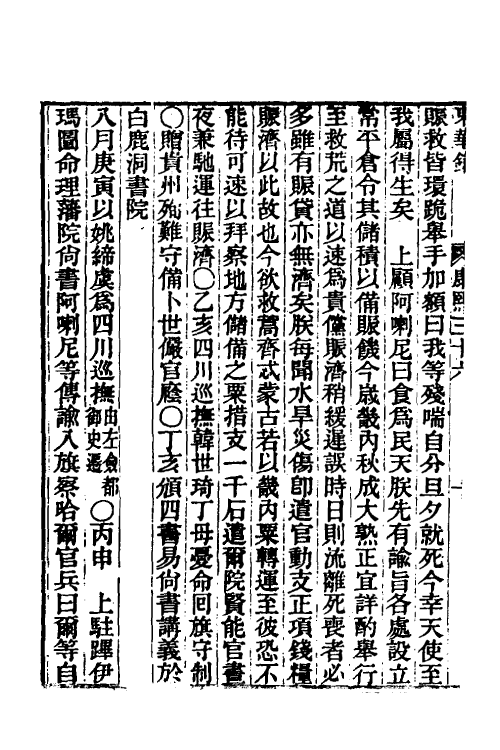 東華錄　康熙三十六
賑救皆環跪舉手加額曰我等殘喘自分旦夕就死今幸天使至
我屬得生矣　上顧阿喇尼曰食爲民天朕先有諭旨各處設立
常平倉令其儲積以備賑饑今歲畿內秋成大熟正宜詳酌舉行
至救荒之道以速爲貴儻賑濟稍緩遲誤時日則流離死喪者必
多雖有賑貸亦無濟矣朕每聞水旱災傷卽遣官動支正項錢糧
賑濟以此故也今欲救蒿齊忒蒙古若以畿內粟轉運至彼恐不
能待可速以拜察地方儲備之粟措支一千石遣爾院賢能官晝
夜兼馳運往賑濟〇乙亥四川巡撫韓世琦丁母憂命回旗守制
〇贈貴州殉難守備卜世儼官廕〇丁亥頒四書易尚書講義於
白鹿洞書院
八月庚寅以姚締虞爲四川巡撫由左僉都御史遷〇丙申　上駐蹕伊
瑪圖命理藩院尚書阿喇尼等傳諭入旗察哈爾官兵曰爾等自